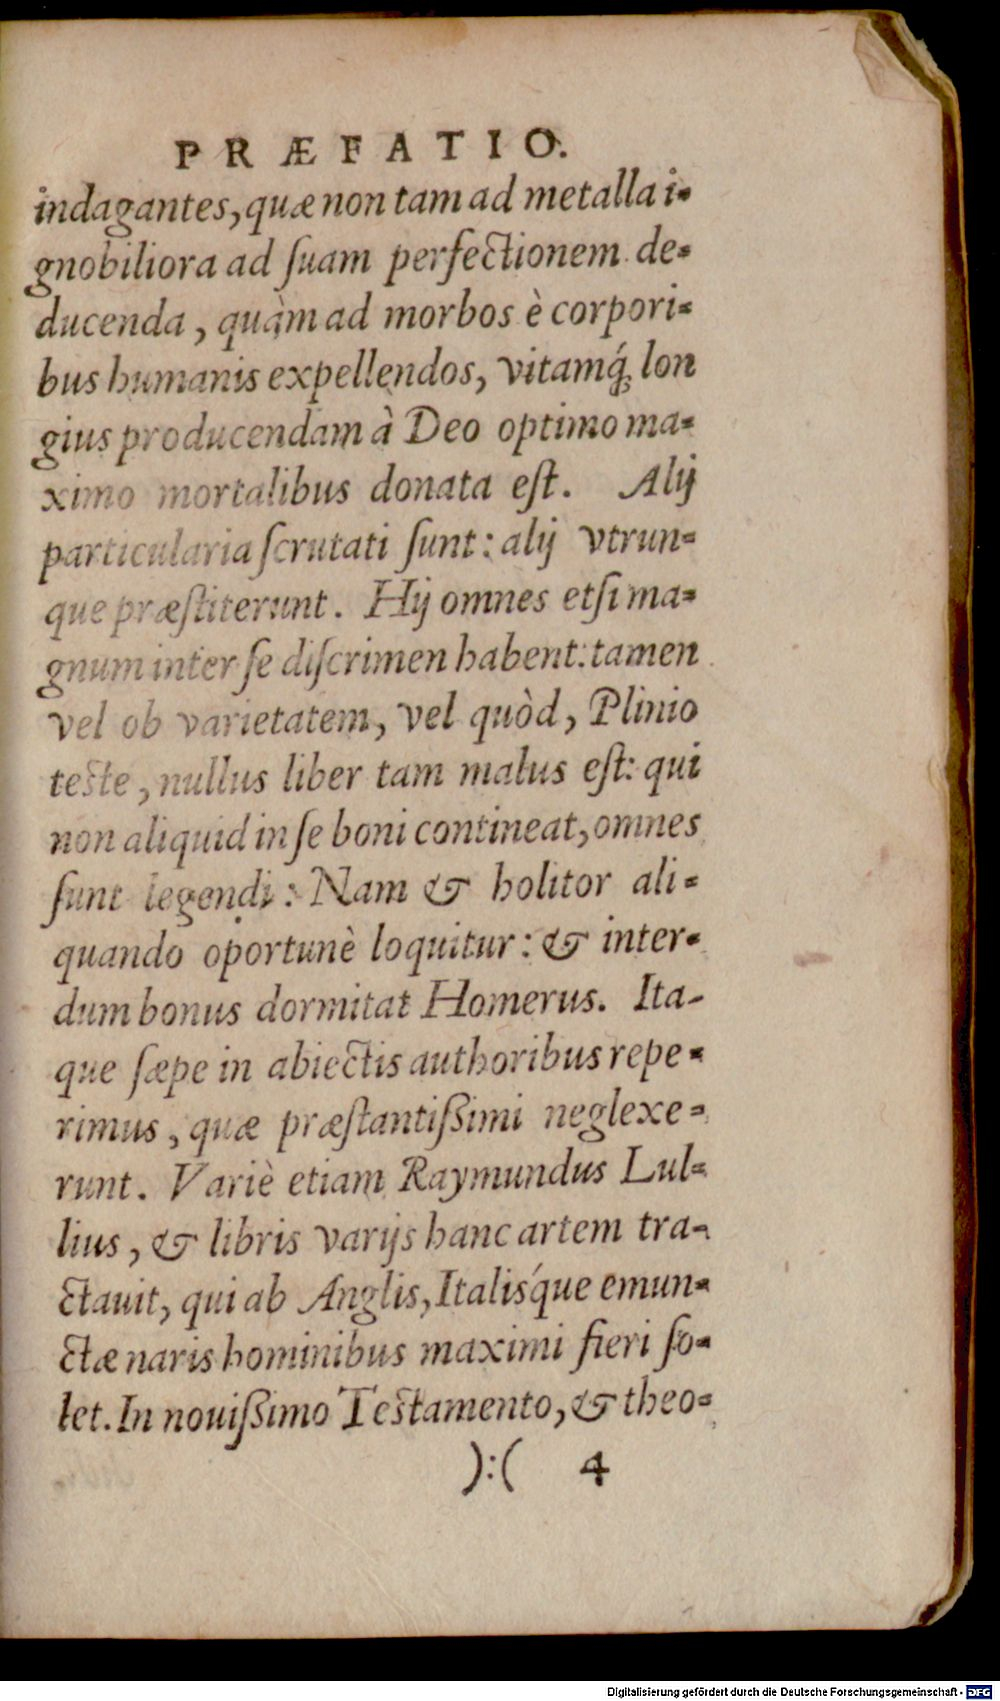 PRÆFATIO.
indagantes, quæ non tam ad metalla i-
gnobiliora ad ſuam perfectionem de-
ducenda, quàm ad morbos è corpori-
bus humanis expellendos, vitamq́; lon
gius producendam à Deo optimo ma-
ximo mortalibus donata eſt. Alij
particularia ſcrutati ſunt: alij vtrun-
que præſtiterunt. Hij omnes etſi ma-
gnum inter ſe diſcrimen habent: tamen
vel ob varietatem, vel quòd, Plinio
teste, nullus liber tam malus eſt: qui
non aliquid in ſe boni contineat, omnes
ſunt legendi: Nam & holitor ali-
quando oportunè loquitur: & inter-
dum bonus dormitat Homerus. Ita-
que ſæpe in abiectis authoribus repe-
rimus, quæ præſtantiſſimi neglexe-
runt. Variè etiam Raymundus Lul-
lius, & libris varijs hanc artem tra-
ctauit, qui ab Anglis, Italisq́ue emun-
ctæ naris hominibus maximi fieri ſo-
let. In nouiſſimo Testamento, & theo-
):( 4
Digitalisierung gefördert durch die Deutsche Forschungsgemeinschaft - DFG